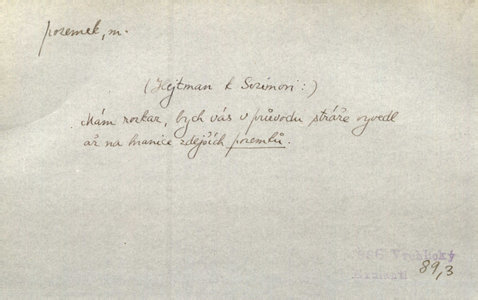 pozemek, m.
(Hejtman k Sozimovi:)
Mám rozkaz, bych vás v průvodu stráže vyvedl
až na hranice zdejších pozemků.
Vrchlický
89,3